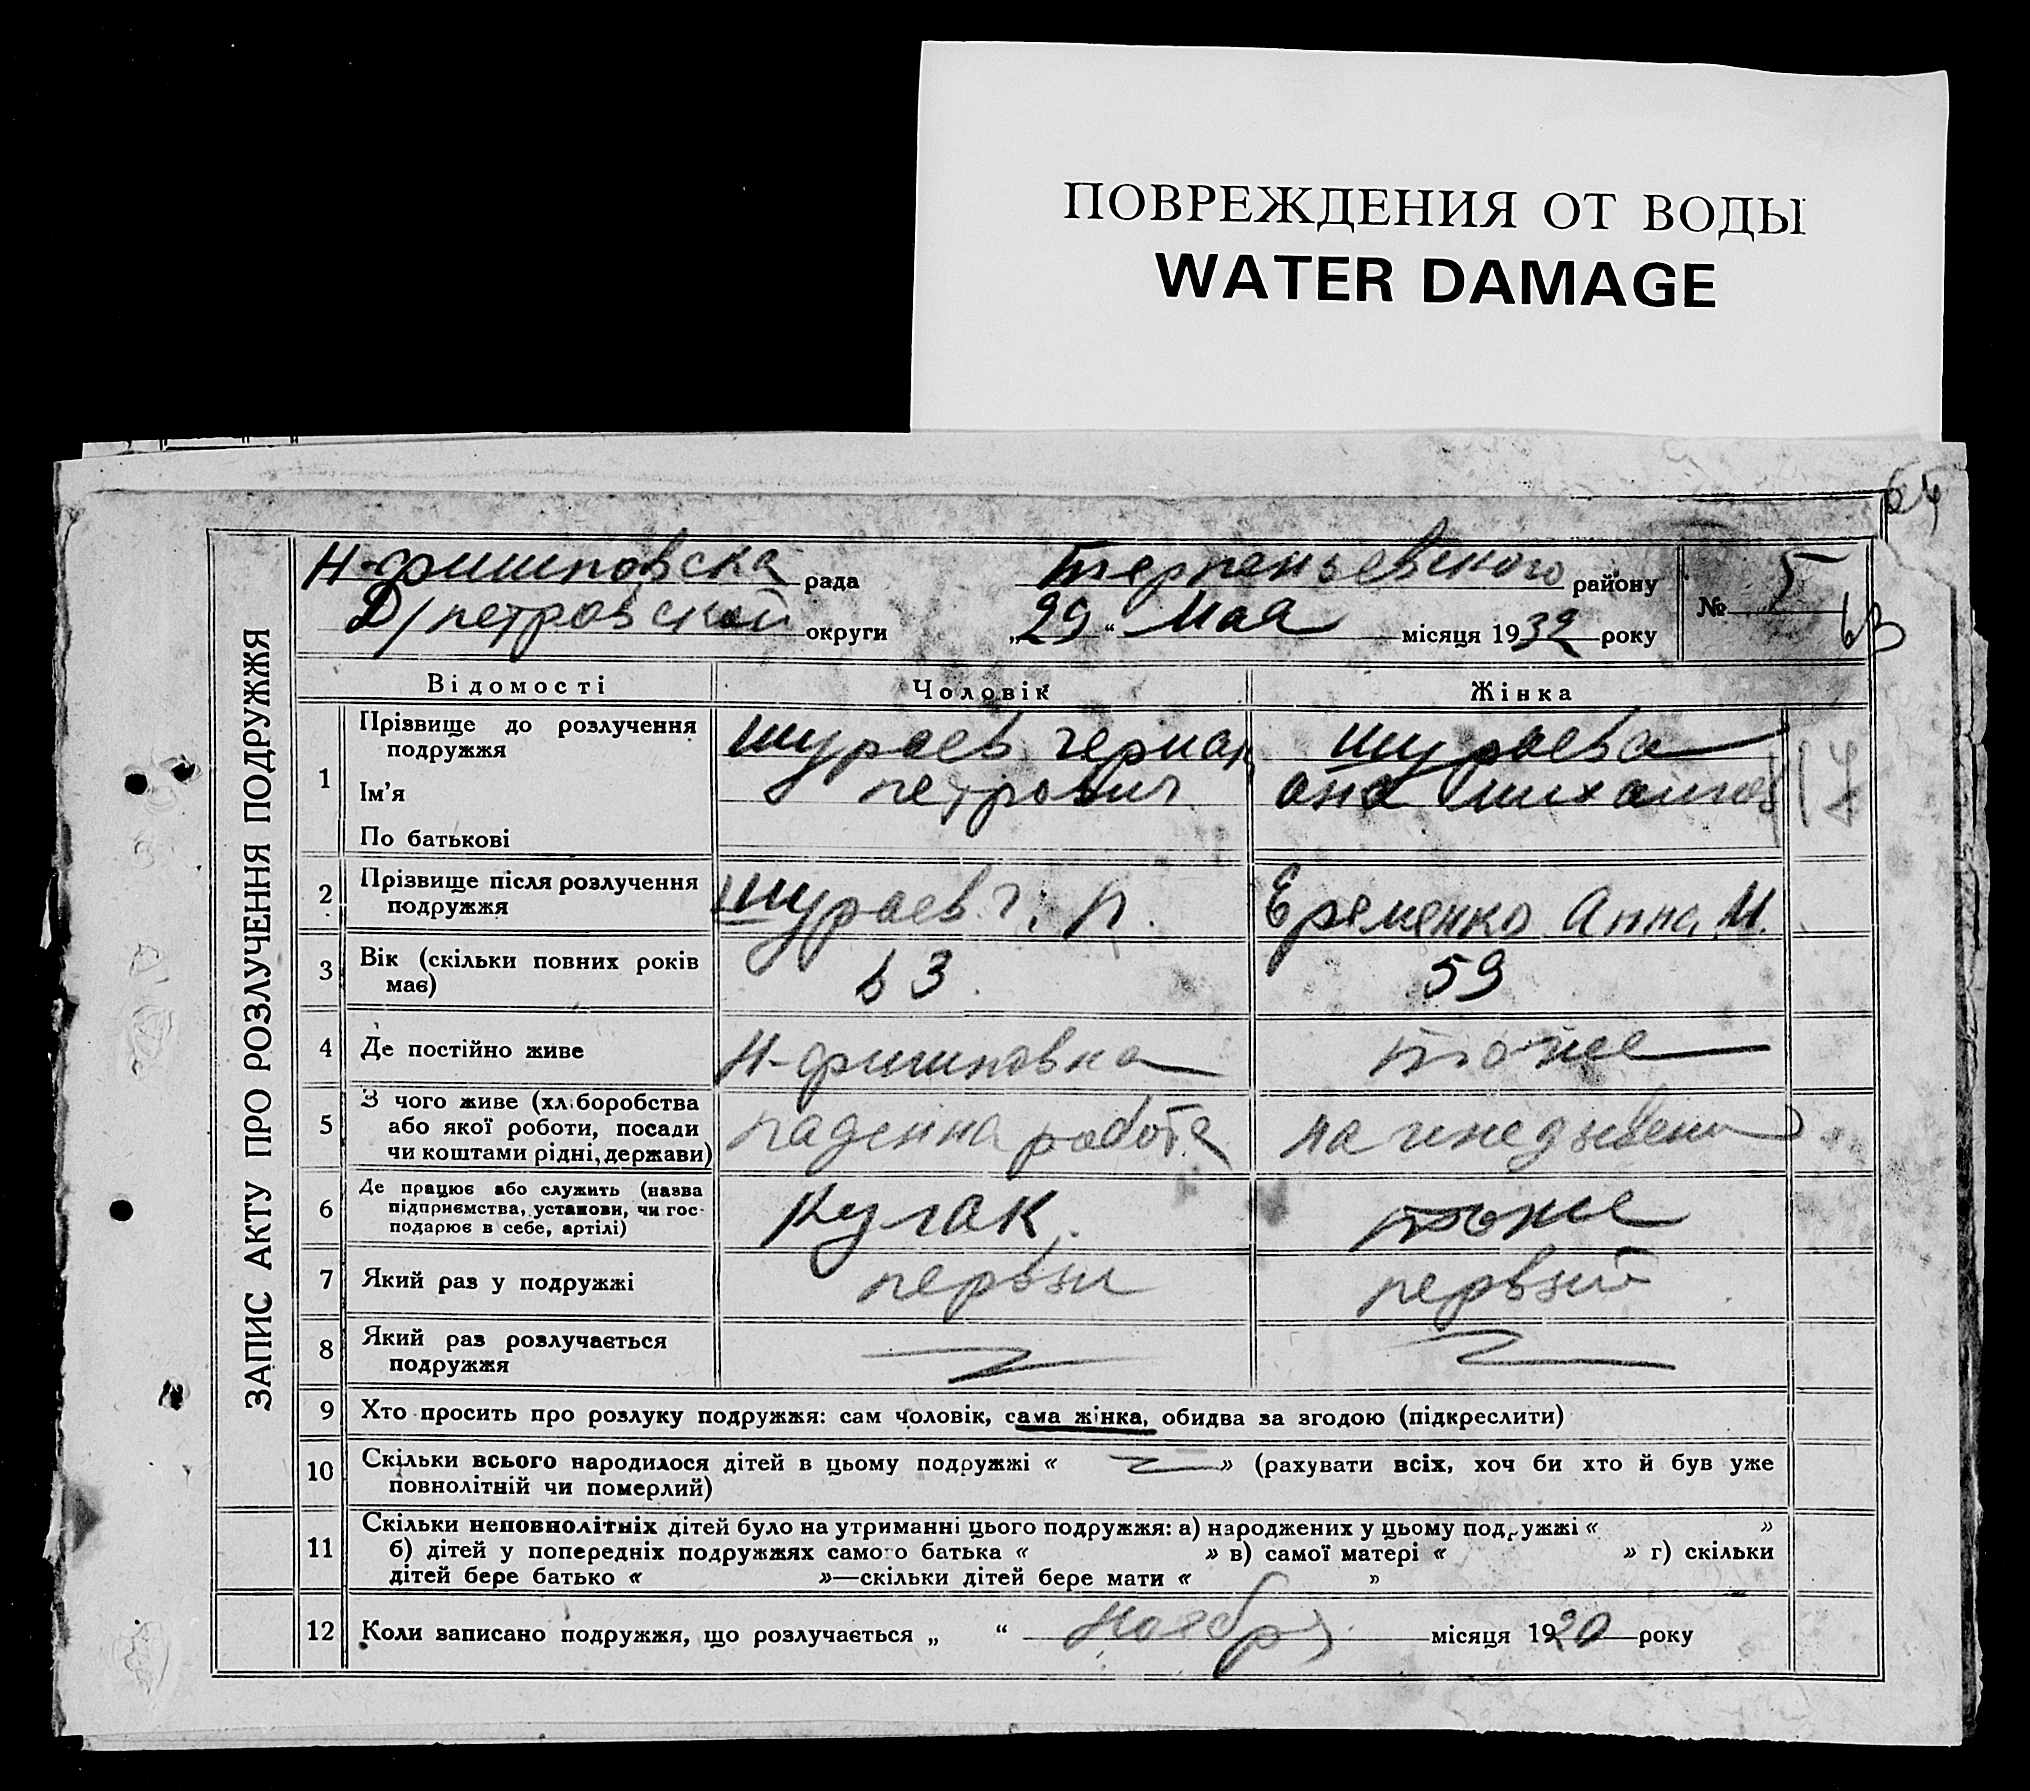 ПОВРЕЖДЕНИЯ ОТ ВОДЫ
WATER DAMAGE
64
ЗАПИС АКТУ ПРО РОЗЛУЧЕННЯ ПОДРУЖЖЯ
Н-филиповска рада Терпеньевского району
№ 5
Д/петровской округи „29“ Мая місяця 1932 року
63
Відомості Чоловік Жінка
1 Прізвище до розлучення подружжя шураев герман шураева
Ім'я петрович ана михаилов
По батькові
2 Прізвище після розлучення подружжя шураев г. п. Еременко Анна М.
3 Вік (скільки повних років має) 63 59
4 Де постійно живе Н-филиповка тоже
5 З чого живе (хліборобства або якої роботи, посади чи коштами рідні, держави) паденна работа на иждывени
6 Де працює або служить (назва підприємства, установи, чи господарює в себе, артілі) Кулак тоже
7 Який раз у подружжі первы первый
8 Який раз розлучається подружжя
9 Хто просить про розлуку подружжя: сам чоловік, сама жінка, обидва за згодою (підкреслити)
10 Скільки всього народилося дітей в цьому подружжі « » (рахувати всіх, хоч би хто й був уже
повнолітній чи померлий)
11 Скільки неповнолітніх дітей було на утриманні цього подружжя: а) народжених у цьому подружжі « »
б) дітей у попередніх подружжях самого батька « » в) самої матері « » г) скільки
дітей бере батько « »—скільки дітей бере мати « »
12 Коли записано подружжя, що розлучається „ “ Ноября місяця 1920 року